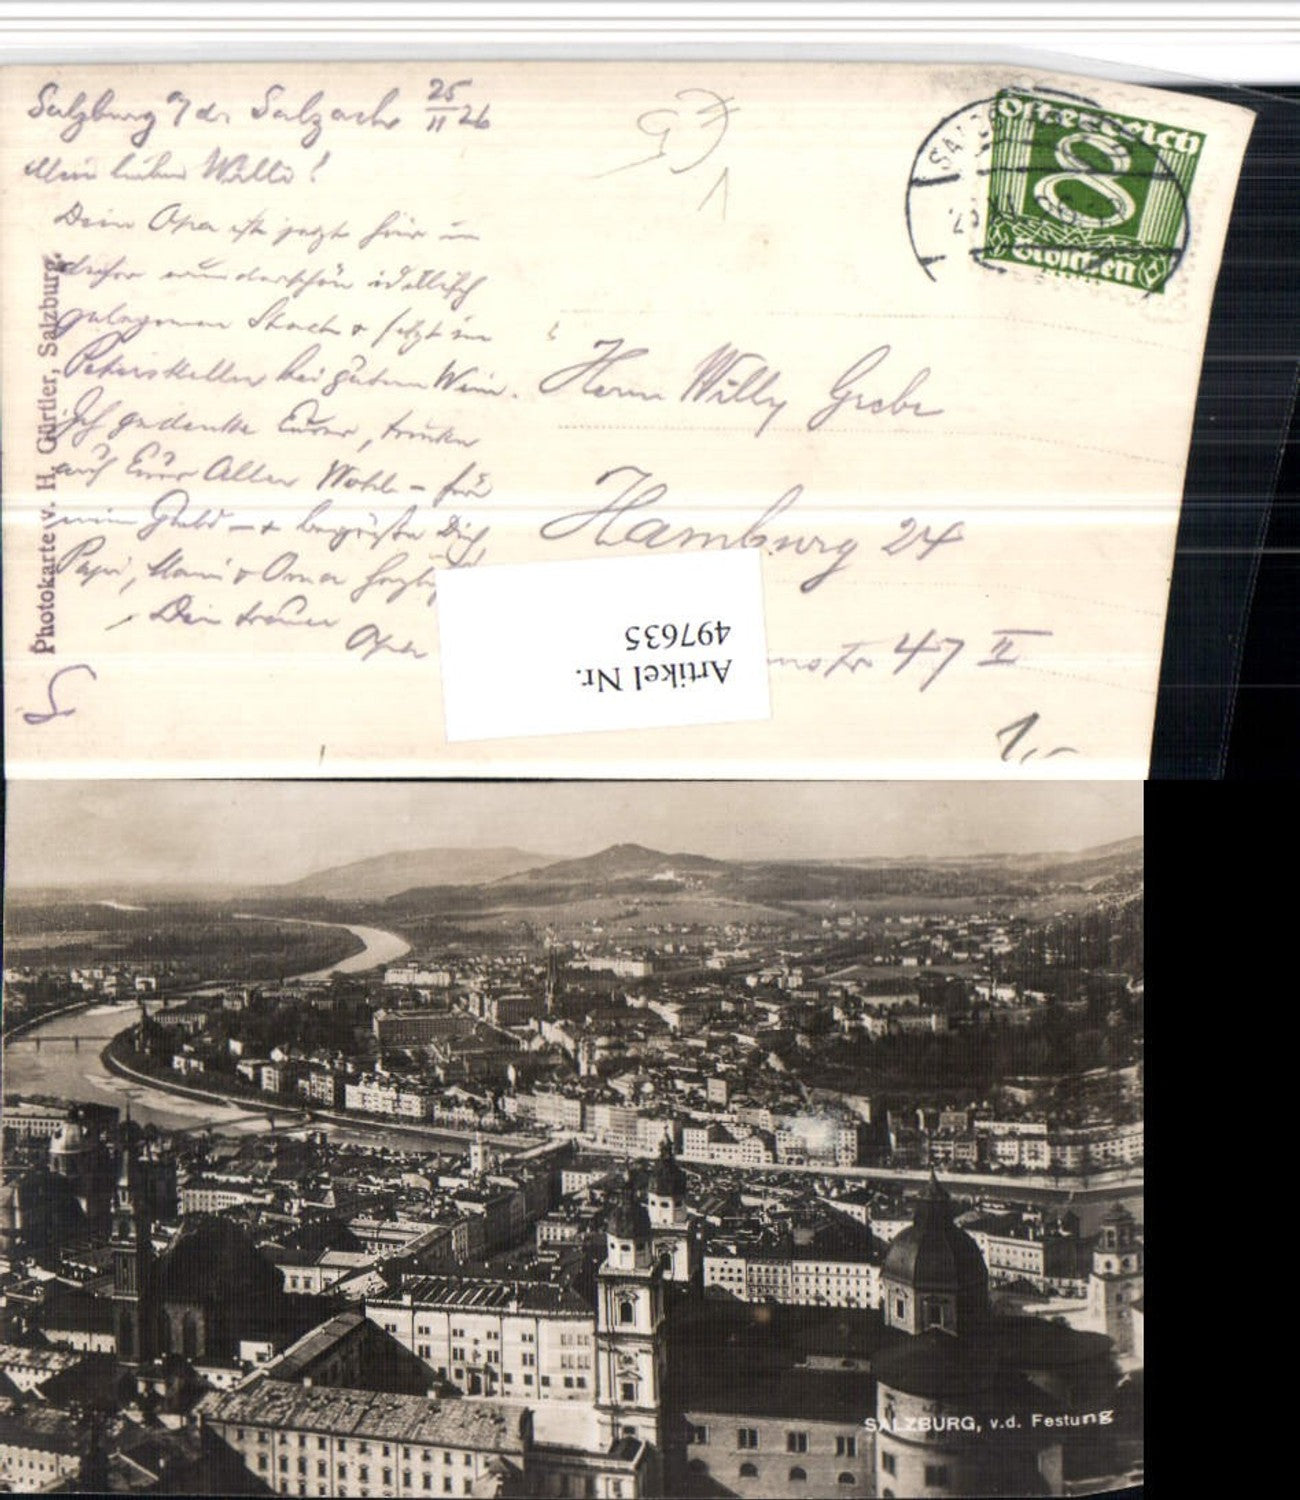 Salzburg a/ der Salzach 25/11 26
Mein lieber Willi!
Dein Opa ist jetzt hier in
dieser wunderschön idyllisch
gelegenen Stadt & sitzt im
Peterskeller bei gutem Wein.
Ich gedenke Eurer, trinke
auf Euer Aller Wohl – für
mein Geld – & begrüße Dich
Papi, Mami & Oma
Dein treuer
Opa
Photokarte v. H. Gürtler, Salzburg.
Österreich
8
Groschen
Herrn Willy Grebe
Hamburg 24
47 II
Artikel Nr.
497635
1,-
SALZBURG, v.d. Festung